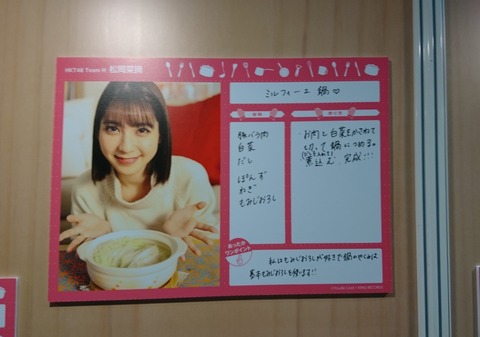 HKT48 Team H 松岡菜摘
ミルフィーユ 鍋♡
材料
作り方
豚バラ肉
白菜
だし
ぽんず
ねぎ
もみじおろし
お肉と白菜をかさねて
切って 鍋につめる。
煮込む 完成!!!
あったか
ワンポイント
私はもみじおろしが好きで鍋のやくみは
基本もみじおろしを使います!!